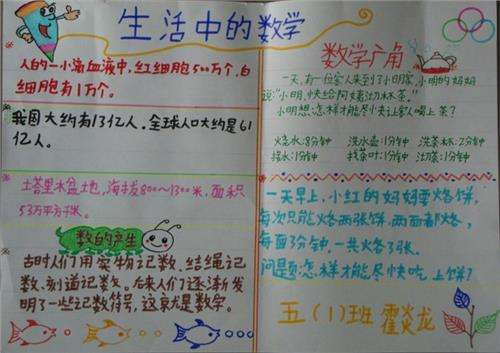 生活中的数学
人的一小滴血液中,红细胞500万个,白
细胞有1万个。
我国大约有13亿人,全球人口大约是61
亿人。
土塔里木盆地,海拔800~1300米,面积
53万平方千米。
数的产生
古时人们用实物记数、结绳记
数、刻道记数。后来人们逐渐发
明了一些记数符号,这就是数字。
数学广角
一天,有一位客人来到了小明家,小明的妈妈
说:"小明,快给阿姨沏杯茶。"
小明想:怎样才能尽快让客人喝上茶?
烧水:8分钟 洗水壶:1分钟 洗茶杯:2分钟
接水:1分钟 找茶叶:1分钟 沏茶:1分钟
一天早上,小红的妈妈要烙饼,
每次只能烙两张饼,两面都烙,
每面3分钟,一共烙了3张。
问题:怎样才能尽快吃上饼?
五(1)班 霍炎龙